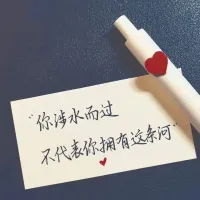 “你涉水而过
不代表你拥有这条河”